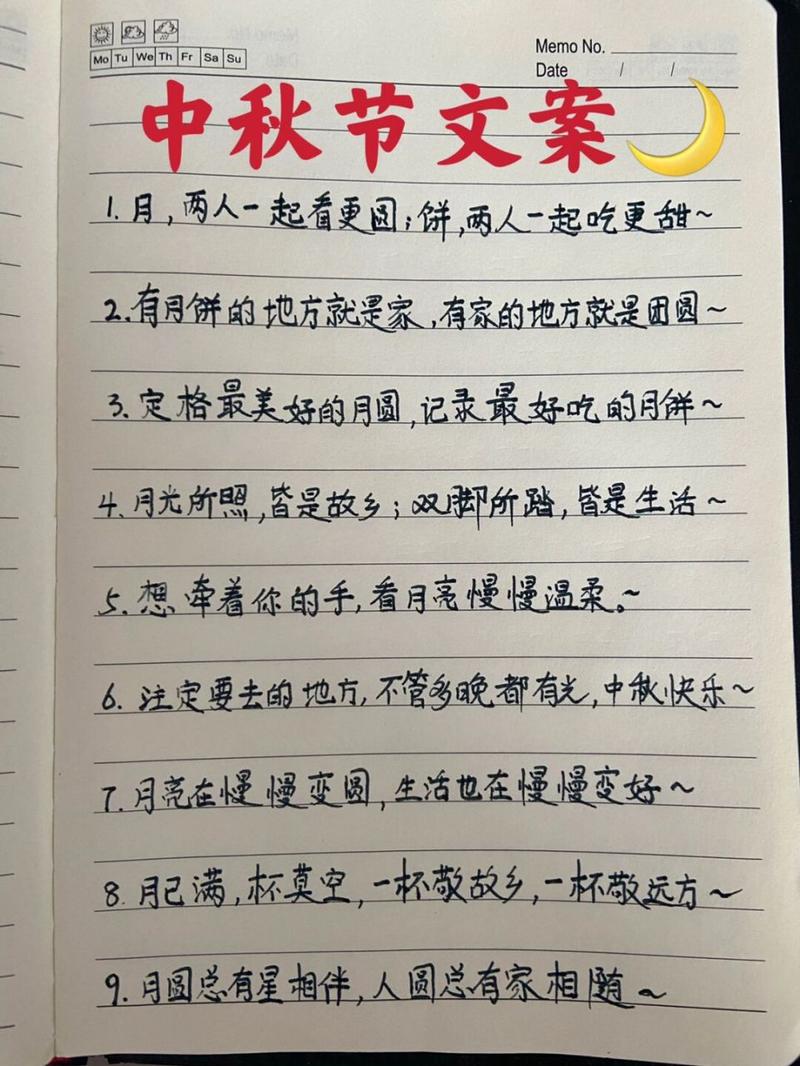 Mo Tu We Th Fr Sa Su
Memo No.
Date / /
中秋节文案
1. 月,两人一起看更圆;饼,两人一起吃更甜~
2. 有月饼的地方就是家,有家的地方就是团圆~
3. 定格最美好的月圆,记录最好吃的月饼~
4. 月光所照,皆是故乡;双脚所踏,皆是生活~
5. 想牵着你的手,看月亮慢慢温柔。~
6. 注定要去的地方,不管多晚都有光,中秋快乐~
7. 月亮在慢慢变圆,生活也在慢慢变好~
8. 月已满,杯莫空,一杯敬故乡,一杯敬远方~
9. 月圆总有星相伴,人圆总有家相随~